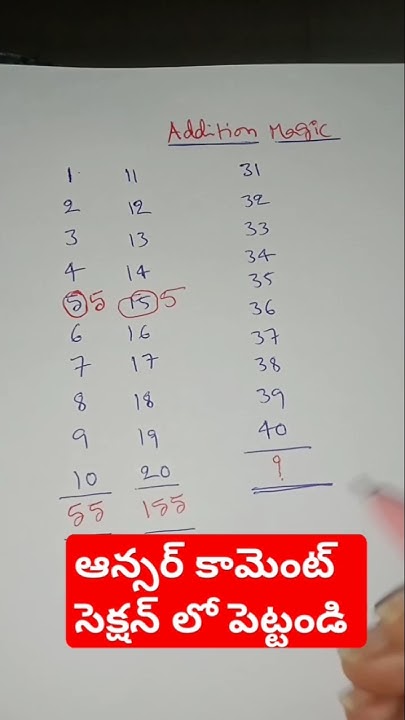 Addition Magic
1 11 31
2 12 32
3 13 33
4 14 34
5 5 15 5 35
6 16 36
7 17 37
8 18 38
9 19 39
10 20 40
55 155 ?
ఆన్సర్ కామెంట్
సెక్షన్ లో పెట్టండి